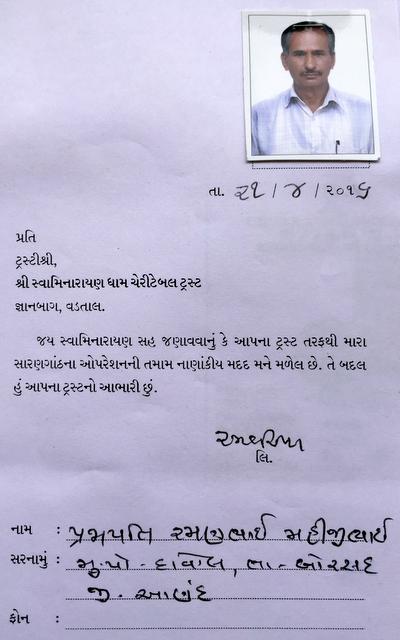 તા. ૨૧ / ૪ / ૨૦૧૬
પ્રતિ
ટ્રસ્ટીશ્રી,
શ્રી સ્વામિનારાયણ ધામ ચેરીટેબલ ટ્રસ્ટ
જ્ઞાનબાગ, વડતાલ.
જય સ્વામિનારાયણ સહ જણાવવાનું કે આપના ટ્રસ્ટ તરફથી મારા
સારણગાંઠના ઓપરેશનની તમામ નાણાંકીય મદદ મને મળેલ છે. તે બદલ
હું આપના ટ્રસ્ટનો આભારી છું.
લિ.
નામ : પ્રજાપતિ રમણભાઈ મહીજીભાઈ
સરનામું : મુ.પો - દાવોલ, તા - બોરસદ
જી. આણંદ
ફોન :